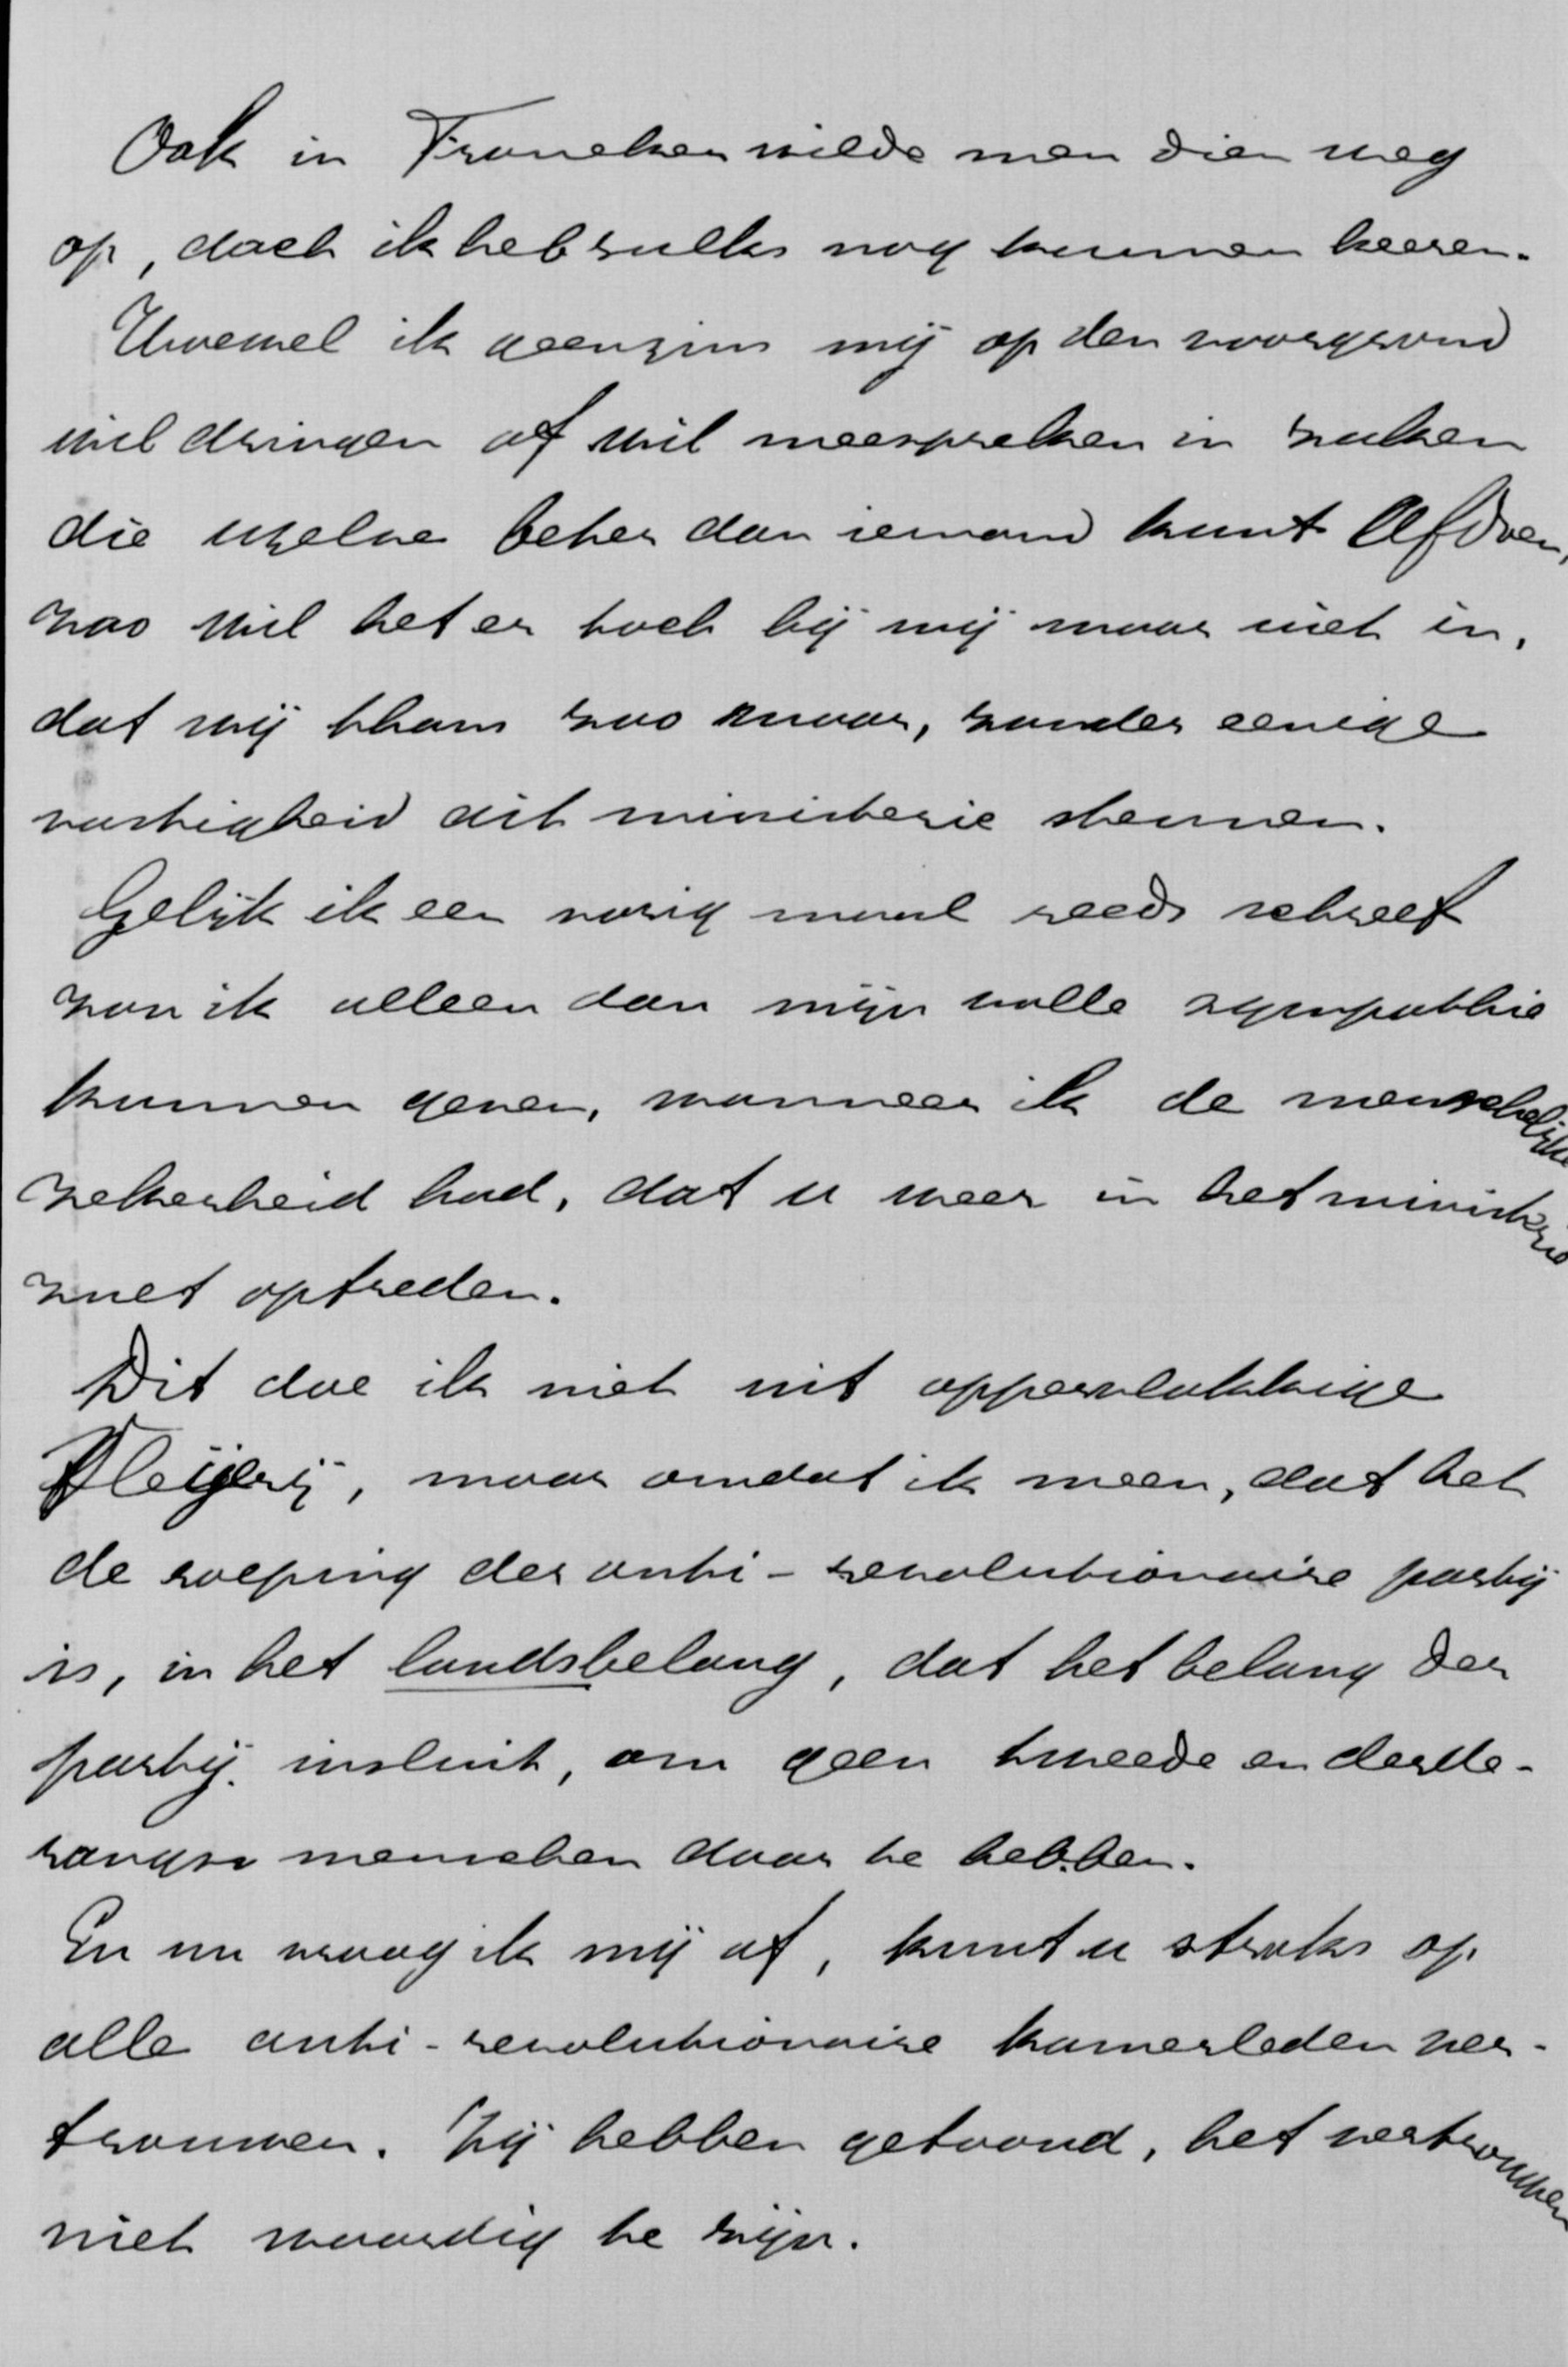 Ook in Franeker wilde men dien weg
op, doch ik heb zulks nog kunnen keeren.
Hoewel ik geenzins mij op den voorgrond
wil dringen of wil meespreken in zaken
die uzelve beter dan iemand kunt afdoen,
zoo wil het er toch bij mij maar niet in,
dat wij thans zoo maar, zonder eenige
vastigheid dit ministerie steunen.
Gelijk ik een vorig maal reeds schreef
zou ik alleen dan mijn volle sympathie
kunnen geven, wanneer ik de menschelijke
zekerheid had, dat u weer in het ministerie
zult optreden.
Dit doe ik niet uit oppervlakkige
vleijerij, maar omdat ik meen, dat het
de roeping der anti-revolutionaire partij
is, in het landsbelang, dat het belang der
partij insluit, om geen tweede en derde-
rangs menschen daar te hebben.
En nu vraag ik mij af, kunt u straks op
alle anti-revolutionaire kamerleden ver-
trouwen. Zij hebben getoond, het vertrouwen
niet waardig te zijn.